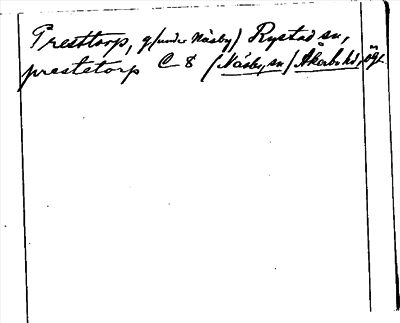 Presttorp, g/under Näsby/ Rystad sn,
prestetorp C 8 /Näsby sn/ Åkerbo hd, Ög.